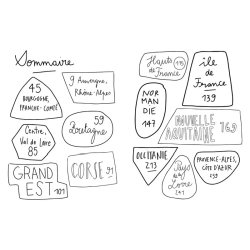 Sommaire
45
BOURGOGNE,
FRANCHE-COMTÉ
9 Auvergne,
Rhône-Alpes
59
Bretagne
Centre,
Val de Loire
85
GRAND
EST 101
CORSE 91
Hauts
de
France
île
de
France
139
NOR
MAN
DIE
147
NOUVELLE
AQUITAINE 163
OCCITANIE
213
Pays
de la
Loire
241
PROVENCE-ALPES,
CÔTE D'AZUR